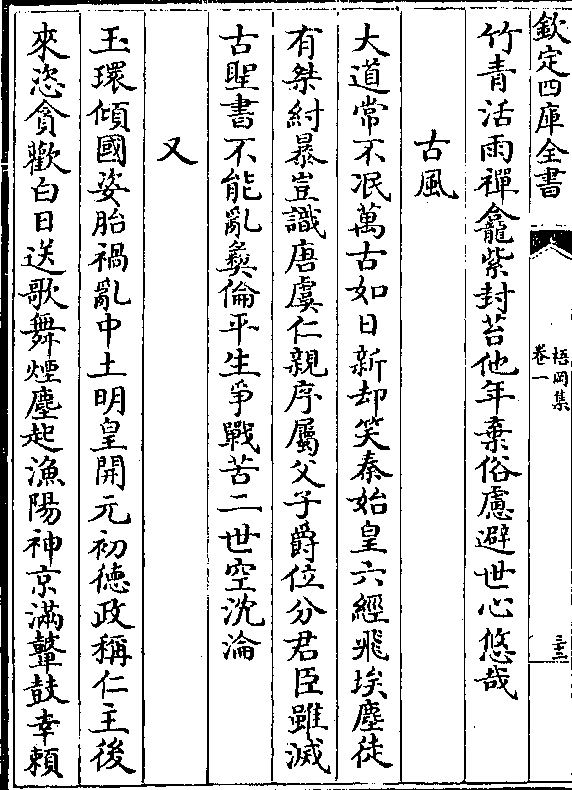 欽定四庫全書
梧岡集
卷一
三十三
竹青活雨禪龕紫封苔他年棄俗慮避世心悠哉
古風
大道常不泯萬古如日新却笑秦始皇六經飛埃塵徒
有桀紂暴豈識唐虞仁親序屬父子爵位分君臣雖滅
古聖書不能亂彜倫平生爭戰苦二世空沈淪
又
玉環傾國姿胎禍亂中土明皇開元初徳政稱仁主後
來恣貪歡白日送歌舞煙塵起漁陽神京滿鼙鼓幸頼